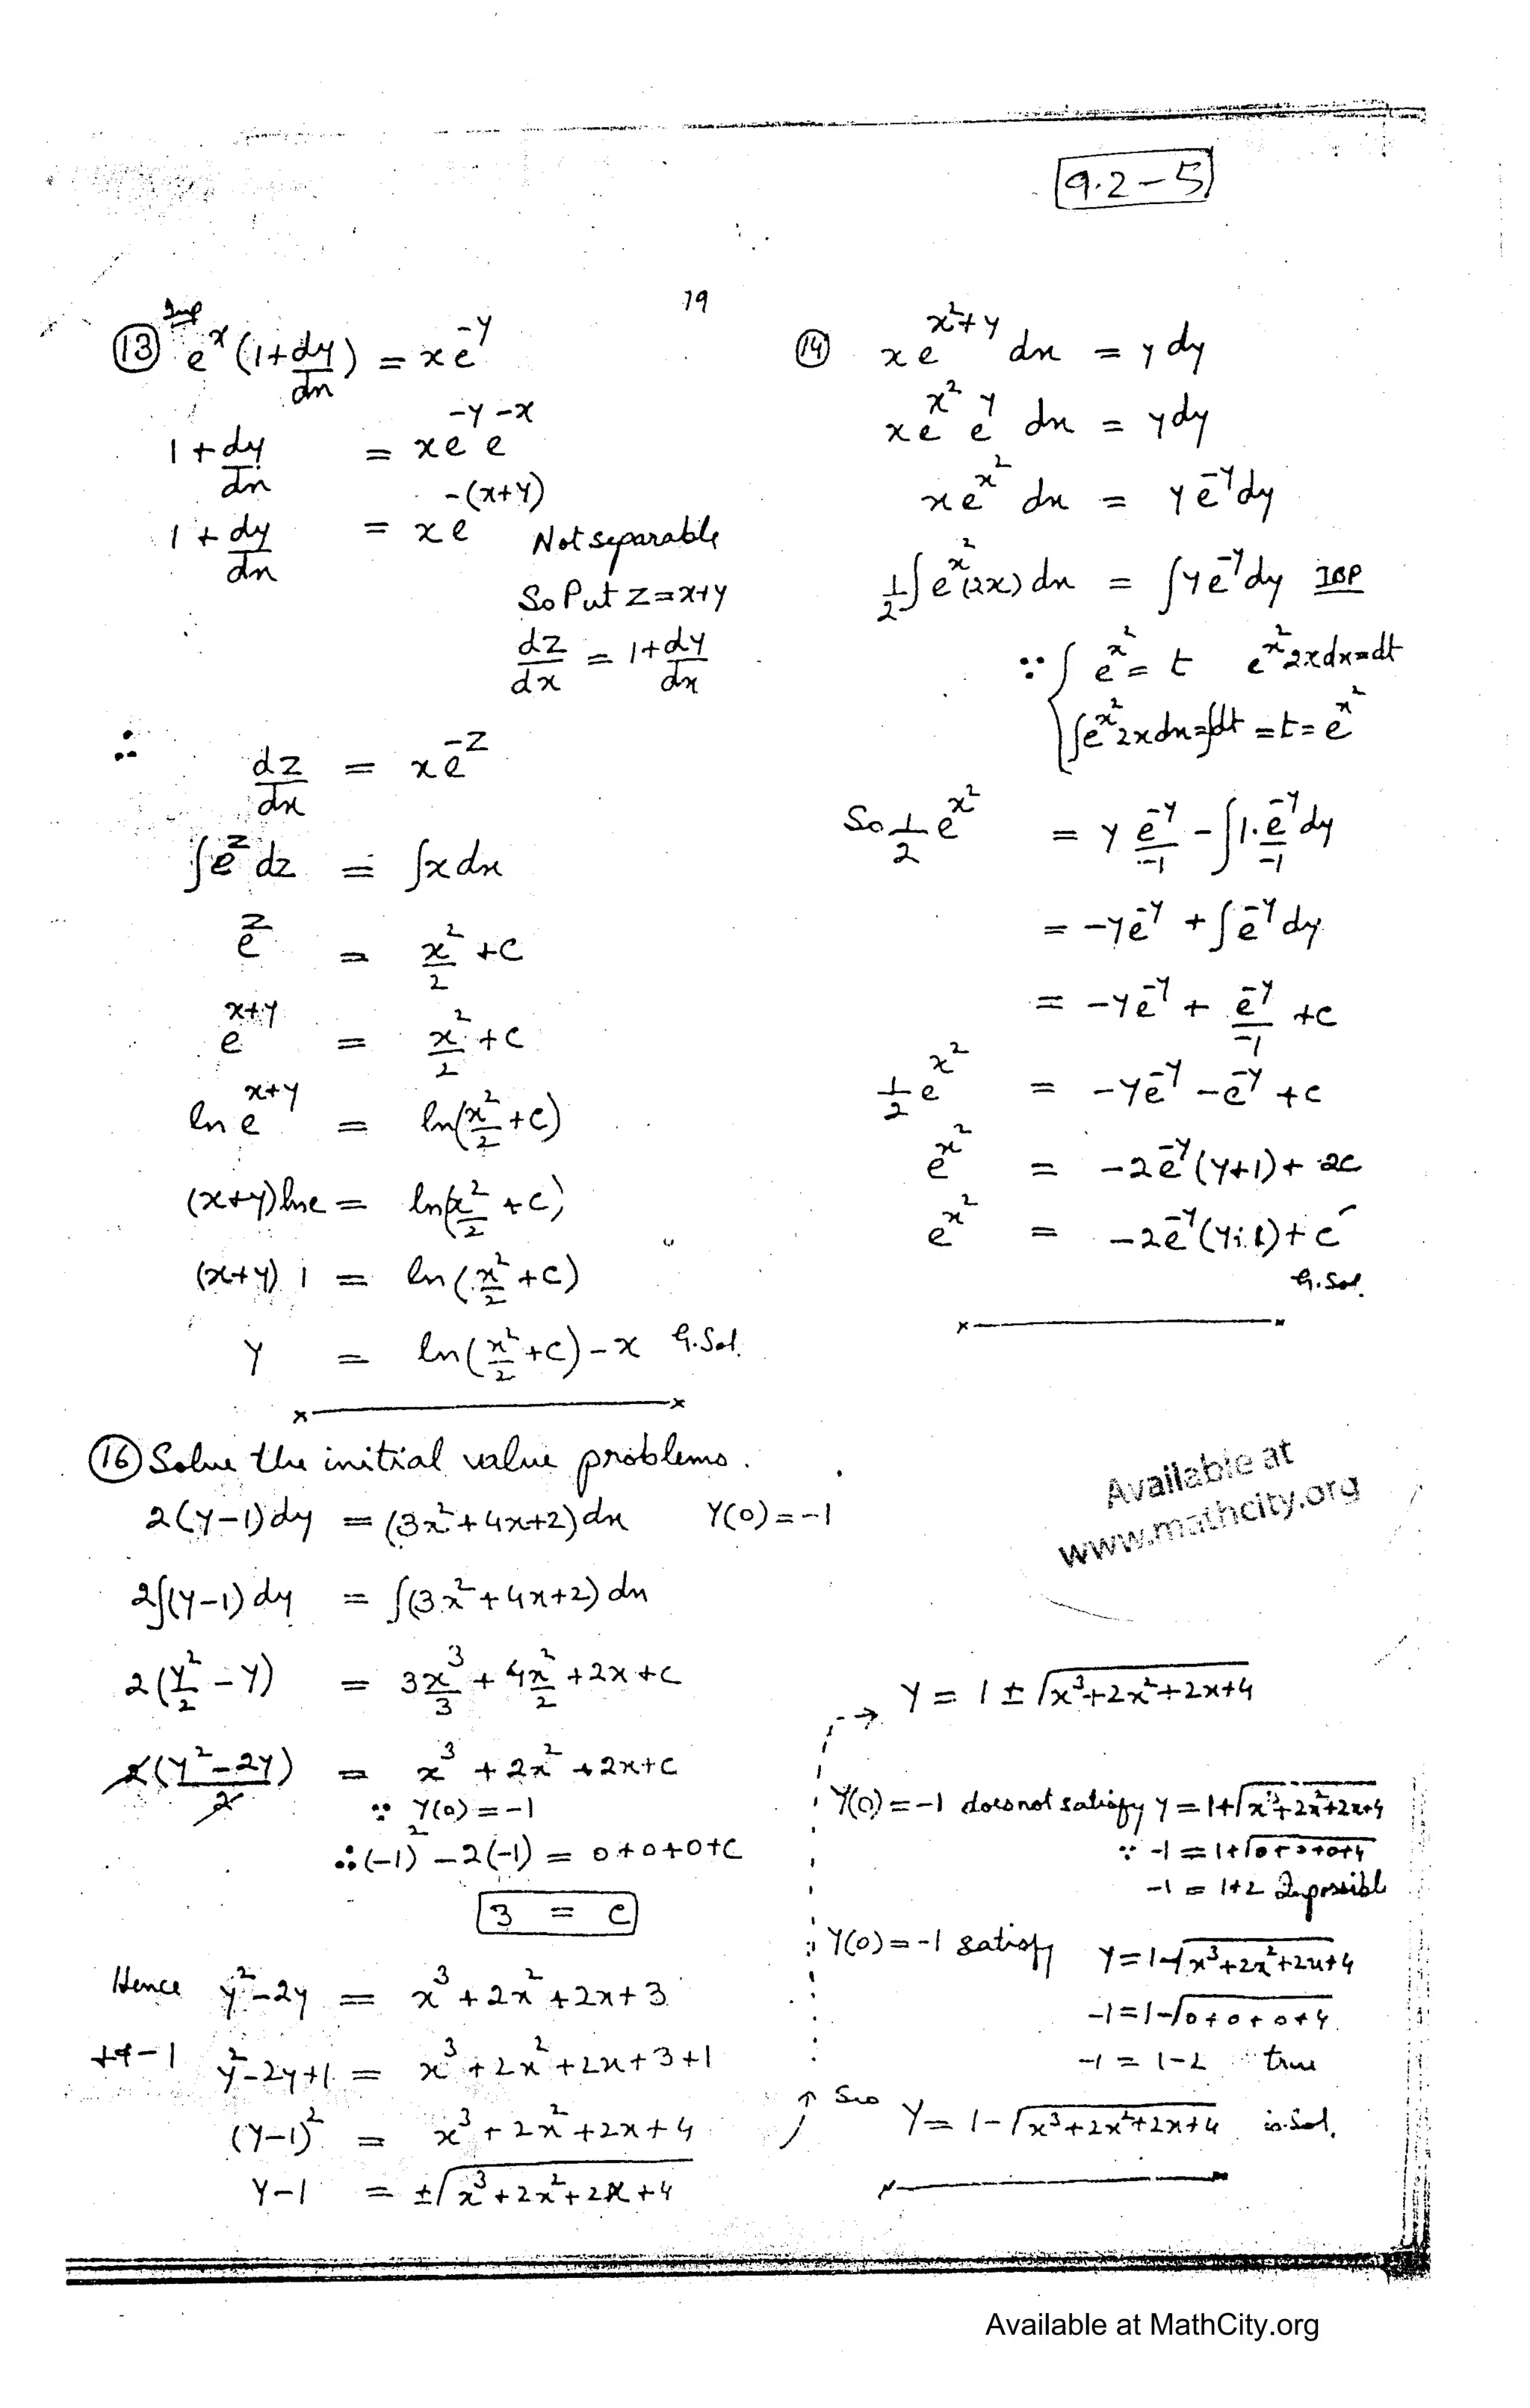 9.2-5
19
Imp
(13) e^x (1+dy/dx) = xe^-y
1+dy/dx = xe^-y e^-x
1+dy/dx = xe^-(x+y) Not separable
So Put z=x+y
dz/dx = 1+dy/dx
∴ dz/dx = xe^-z
∫e^z dz = ∫x dx
e^z = x²/2 +c
e^x+y = x²/2 +c
ln e^x+y = ln(x²/2 +c)
(x+y)lne = ln(x²/2 +c)
(x+y) 1 = ln(x²/2 +c)
y = ln(x²/2 +c)-x G.Sol.
(14) xe^x²+y dx = y dy
xe^x² e^y dx = ydy
xe^x² dx = ye^-y dy
1/2 ∫e^x² (2x) dx = ∫ye^-y dy IBP
∵ { e^x² = t e^x² 2xdx=dt
∫e^x² 2xdx=∫dt =t= e^x²
So 1/2 e^x² = y e^-y/-1 - ∫1. e^-y/-1 dy
= -ye^-y + ∫e^-y dy
= -ye^-y + e^-y/-1 +c
1/2 e^x² = -ye^-y -e^-y +c
e^x² = -2e^-y (y+1)+ 2c
e^x² = -2e^-y (y+1)+ c'
G.Sol.
(16) Solve the initial value problems.
2(y-1)dy = (3x²+4x+2)dx y(0)=-1
2∫(y-1)dy = ∫(3x²+4x+2)dx
2(y²/2 - y) = 3x³/3 + 4x²/2 +2x+c
2(y²-2y)/2 = x³ + 2x² +2x+c
∵ y(0)=-1
∴ (-1)² -2(-1) = 0+0+0+c
3 = c
Hence y²-2y = x³+2x²+2x+3
y²-2y+1 = x³+2x²+2x+3+1
(y-1)² = x³+2x²+2x+4
y-1 = ±√x³+2x²+2x+4
Available at
www.mathcity.org
y = 1±√x³+2x²+2x+4
y(0)=-1 does not satisfy y=1+√x³+2x²+2x+4
∵ -1=1+√0+0+0+4
-1 = 1+2 Impossible
y(0)=-1 satisfy y=1-√x³+2x²+2x+4
-1=1-√0+0+0+4
-1 = 1-2 true
So y= 1-√x³+2x²+2x+4 is Sol.
Available at MathCity.org